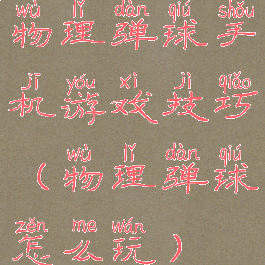 wù lǐ dàn qiú shǒu
物理弹球手
jī yóu xì jì qiǎo
机游戏技巧
wù lǐ dàn qiú
（物理弹球
zěn me wán
怎么玩）